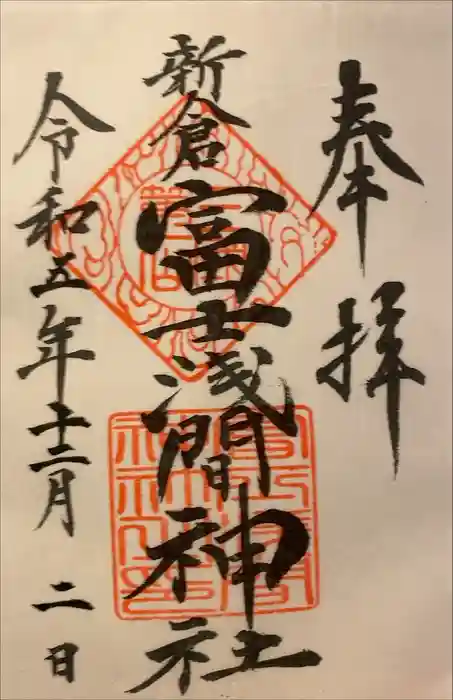 奉拝
新倉富士浅間神社
令和五年十二月二日